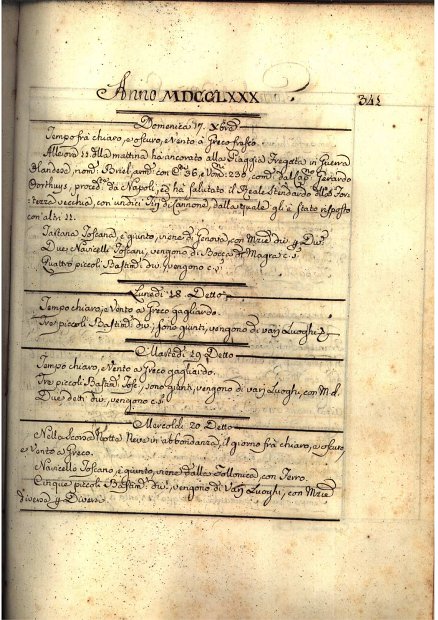 Anno MDCCLXXX
341
Domenica 17. Xbre
Tempo frà chiaro, e oscuro, e Vento à Greco fresco.
All'ora 11. della mattina hà ancorato alla Piaggia Fregata in Guerra
Olandese, nom: Briel, arm: con C. 36, e Uom: 230, com: dal Cap: Gerardo
Oorthuys, proced: da Napoli, ed hà salutato il Reale Stendardo della For-
tezza vecchia, con undici Tiri di Cannone, dalla quale gli è stato risposto
con altri 11.
Tartana Toscana, è giunto, viene di Genova, con Mrzie div: p Div:
Due Navicelli Toscani, vengono di Bocca di Magra c. s.
Quattro piccoli Bastim: div: vengono c. s.
Lunedì 18. Detto
Tempo chiaro, e Vento à Greco gagliardo.
Tre piccoli Bastim: div: sono giunti, vengono di varj Luoghi
Martedì 19 Detto
Tempo chiaro, e Vento à Greco gagliardo.
Tre piccoli Bastim: Tosc: sono giunti, vengono di varj Luoghi, con M. d.
Due detti div: vengono c. s.
Mercoldì 20 Detto
Nella scorsa Notte Neve in abbondanza, il giorno frà chiaro, e oscuro,
e Vento à Greco.
Navicello Toscano, è giunto, viene dalla Follonica, con Ferro.
Cinque piccoli Bastim: div: vengono di Varj Luoghi, con Mrzie
diversa p Diversi